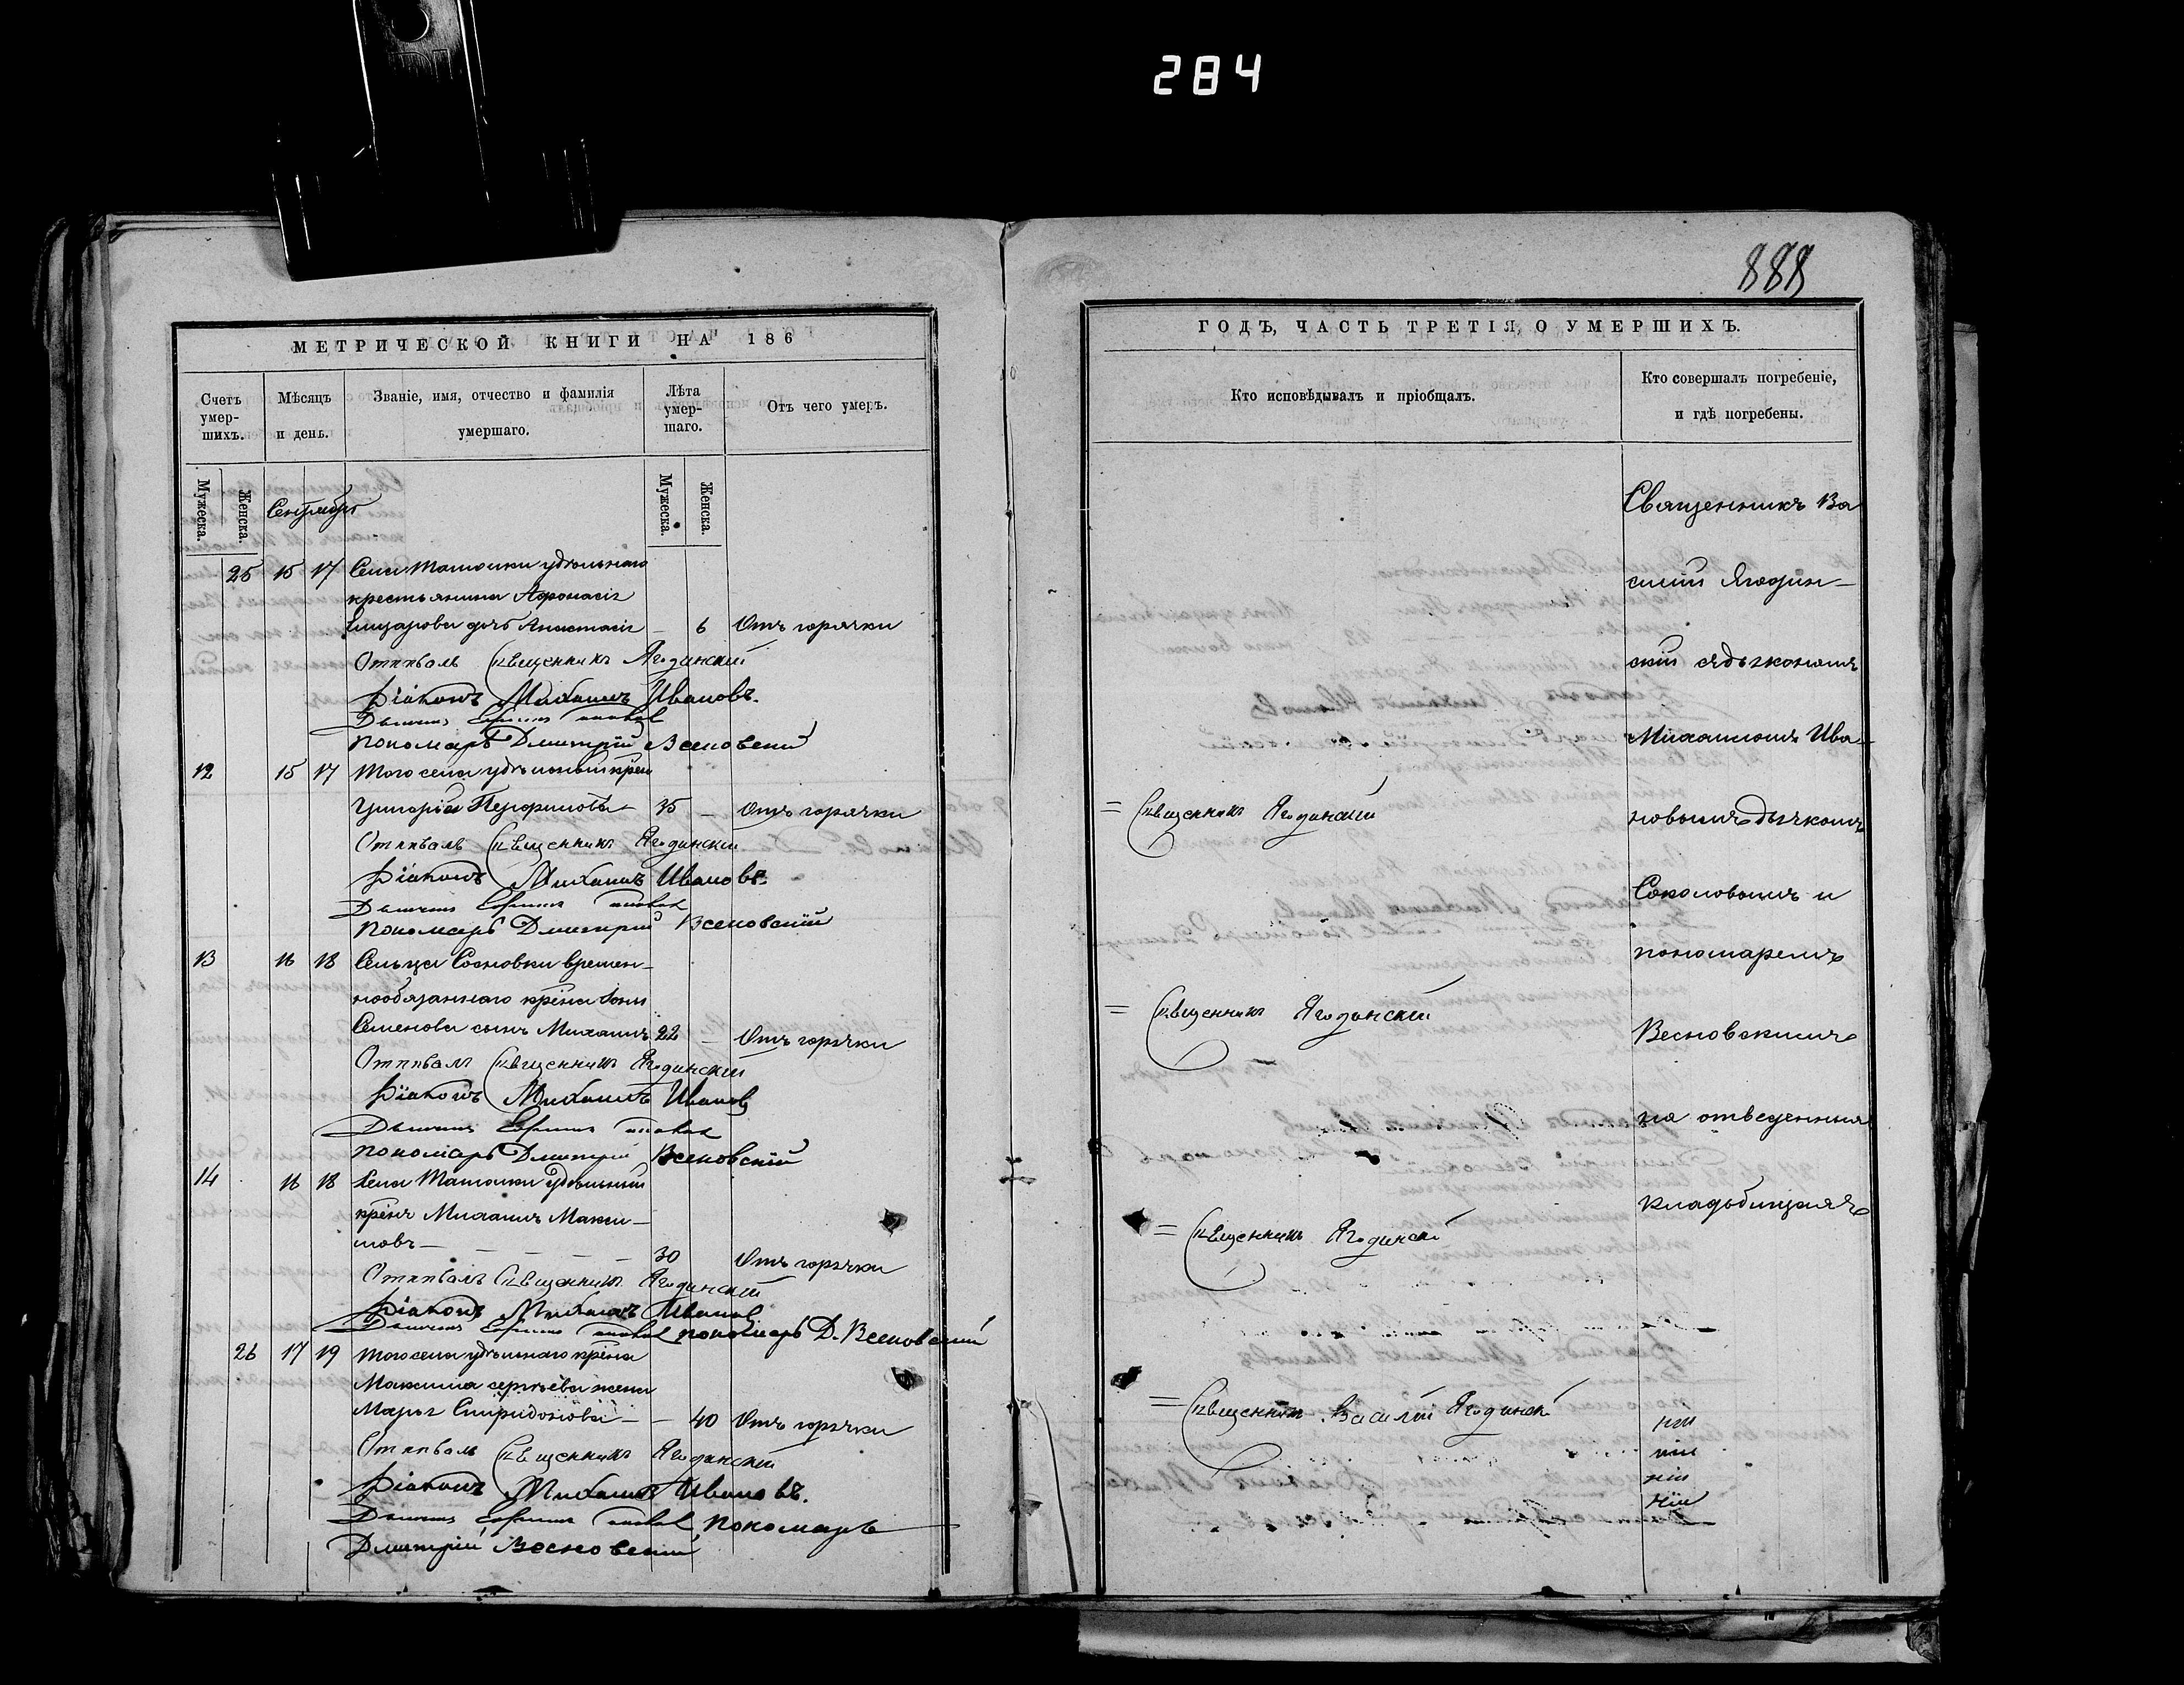 284
888
МЕТРИЧЕСКОЙ КНИГИ НА 186
Счетъ умер-шихъ.
Мѣсяцъ и день.
Званіе, имя, отчество и фамилія умершаго.
Лѣта умер-шаго.
Отъ чего умеръ.
Мужеска.
Женска.
Мужеска.
Женска.
Сентябрь
25 15 17 Села удѣльнаго
крестьянина Афонасія
дочь Анастасія — 6 Отъ горячки
Отпѣвалъ Священникъ Ягодинскій
Діаконъ Михаилъ Ивановъ.
Пономарь Дмитрій Весновскій
12 15 17 Того села удѣльный крен
Григорій — 35 — Отъ горячки
Отпѣвалъ Священникъ Ягодинскій
Діаконъ Михаилъ Ивановъ.
Пономарь Дмитрій Весновскій
13 16 18 Сельца Сосновки времен-
нообязаннаго крѣна
Семенова сынъ Михаилъ 22 — Отъ горячки
Отпѣвалъ Священникъ Ягодинскій
Діаконъ Михаилъ Ивановъ
Пономарь Дмитрій Весновскій
14 16 18 Села удѣльный
крѣнъ Михаилъ Макси-
мовъ — 30 Отъ горячки
Отпѣвалъ Священникъ Ягодинскій
Діаконъ Михаилъ Ивановъ
пономарь Д. Весновскій
26 17 19 Того села удѣльнаго крѣна
Максима Сергѣева жена
Марья Спиридонова — — 40 Отъ горячки
Отпѣвалъ Священникъ Ягодинскій
Діаконъ Михаилъ Ивановъ.
Пономарь
Дмитрій Весновскій
ГОДЪ, ЧАСТЬ ТРЕТІЯ, О УМЕРШИХЪ.
Кто исповѣдывалъ и пріобщалъ.
Кто совершалъ погребеніе,
и гдѣ погребены.
= Священникъ Ягодинскій
= Священникъ Ягодинскій
= Священникъ Ягодинскій
= Священникъ Василій Ягодинскій
Священникъ Ва
силій Ягодин-
скій съ діакономъ
Михаиломъ Ива-
новымъ дьячкомъ
Соколовымъ и
пономаремъ
Весновскимъ
на отведенныхъ
кладбищахъ